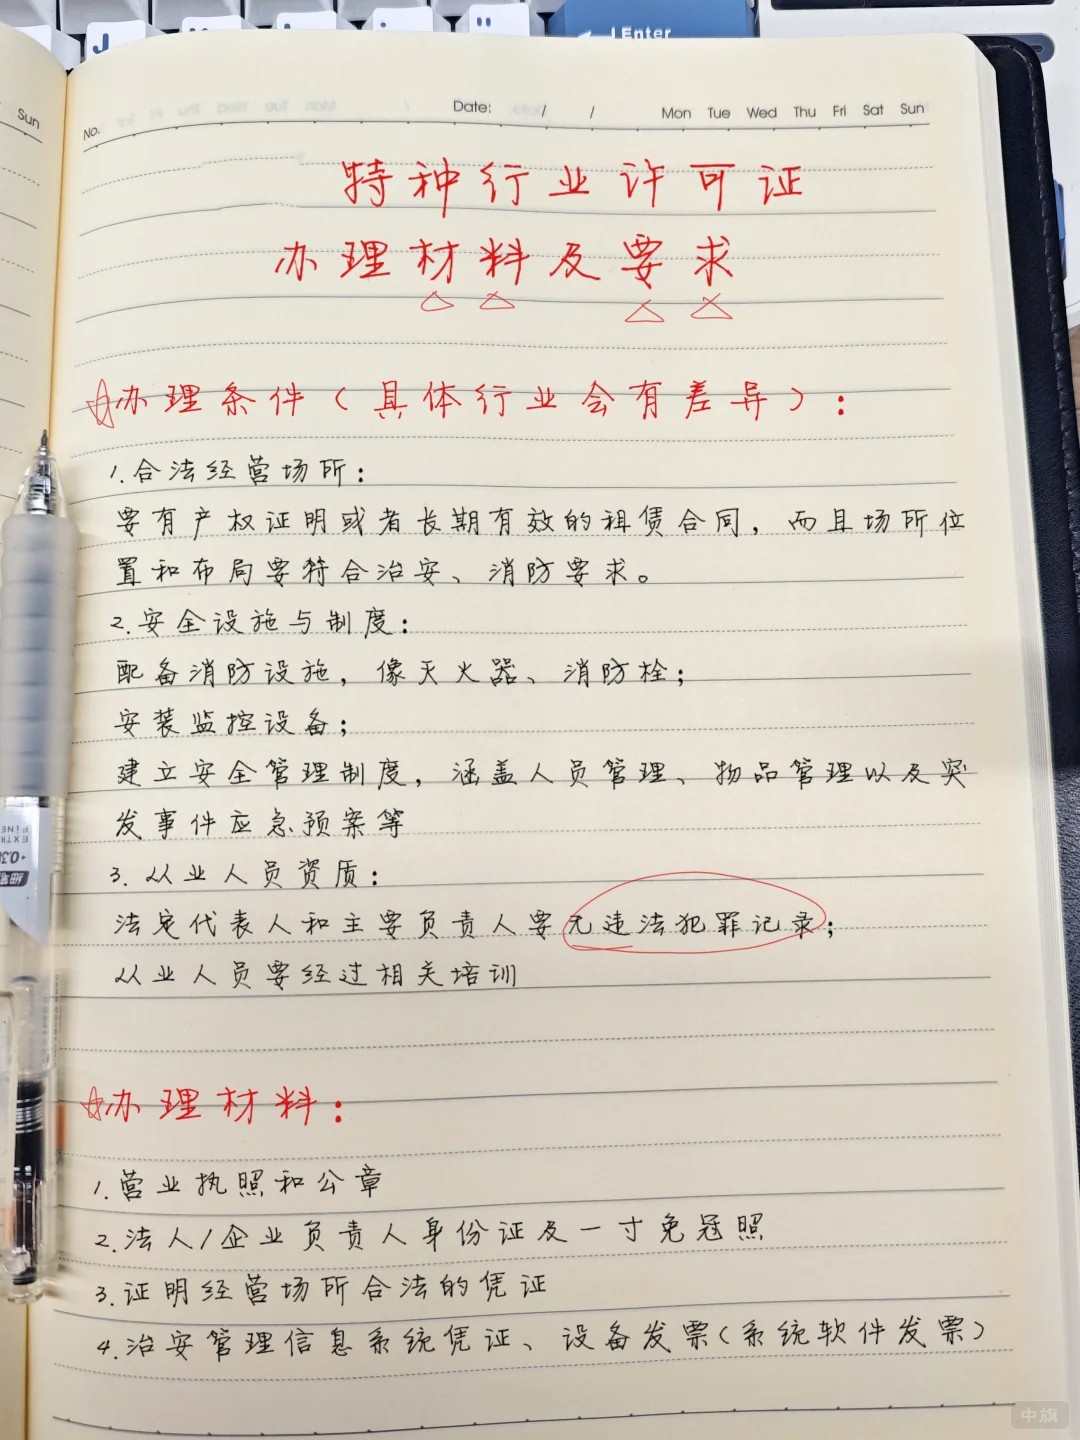 J
Enter
Sun
No.
Date: / /
Mon Tue Wed Thu Fri Sat Sun
特种行业许可证
办理材料及要求
☆办理条件(具体行业会有差异):
1.合法经营场所:
要有产权证明或者长期有效的租赁合同,而且场所位
置和布局要符合治安、消防要求。
2.安全设施与制度:
配备消防设施,像灭火器、消防栓;
安装监控设备;
建立安全管理制度,涵盖人员管理、物品管理以及突
发事件应急预案等
3.从业人员资质:
法定代表人和主要负责人要无违法犯罪记录;
从业人员要经过相关培训
☆办理材料:
1.营业执照和公章
2.法人/企业负责人身份证及一寸免冠照
3.证明经营场所合法的凭证
4.治安管理信息系统凭证、设备发票(系统软件发票)
中旗